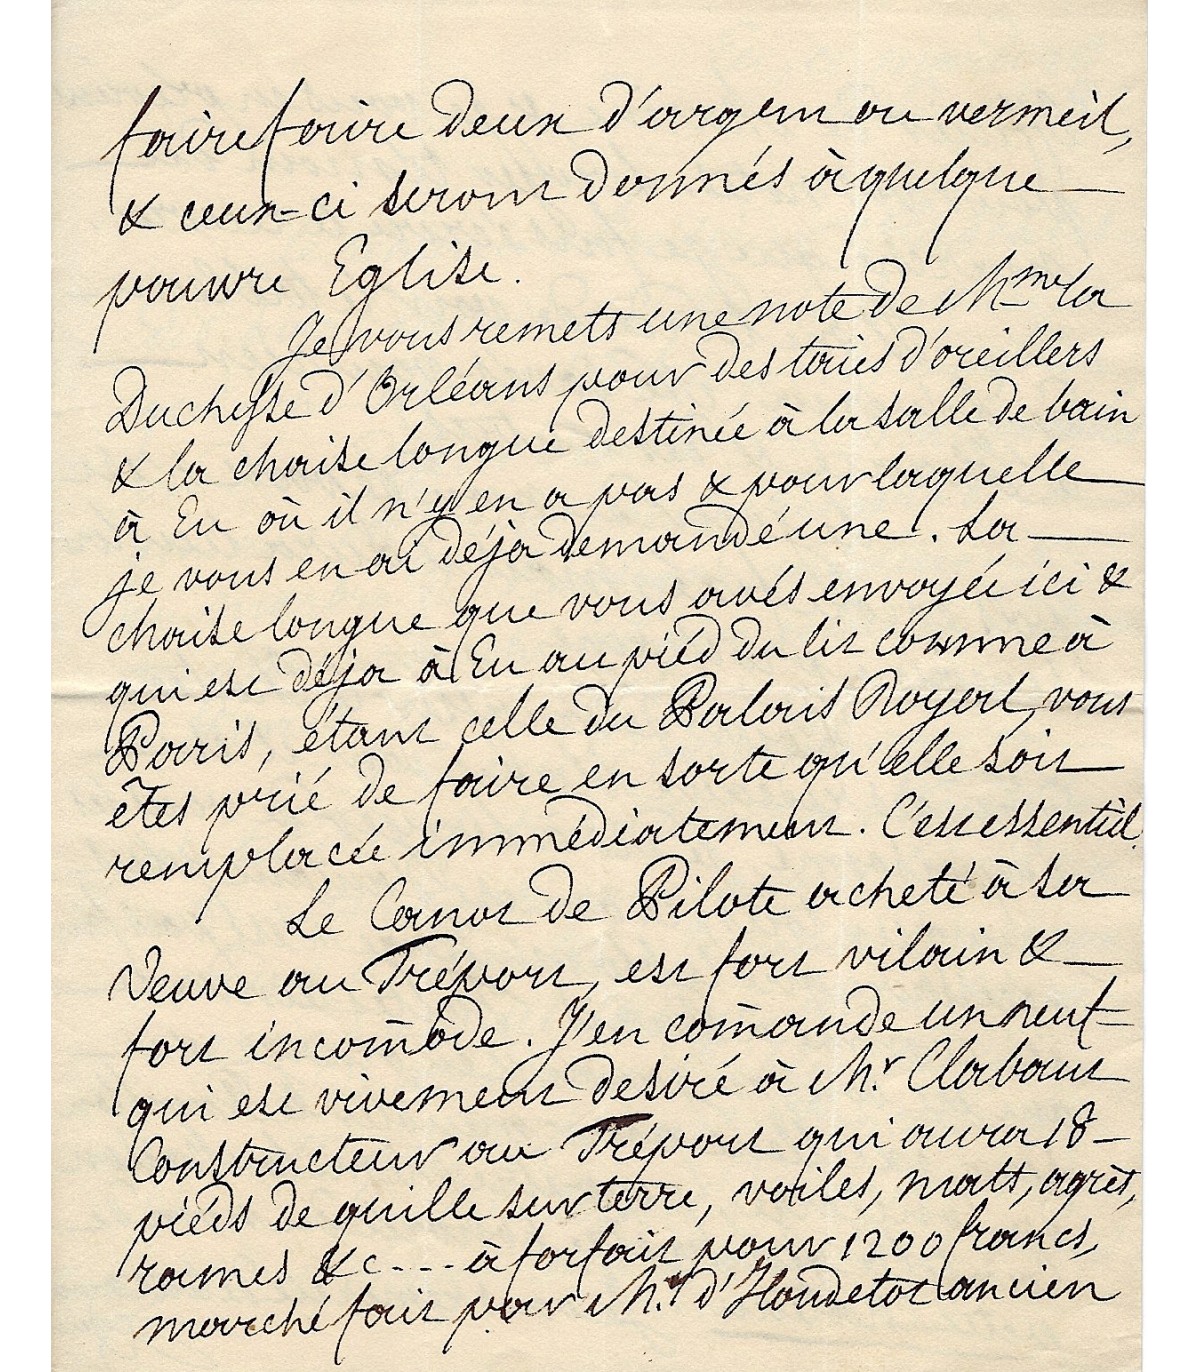 faire faire deux d'argent ou vermeil,
& ceux-ci seront donnés à quelque
pauvre Eglise.
Je vous remets une note de Mme la
Duchesse d'Orléans pour des taies d'oreillers
& la chaise longue destinée à la salle de bain
à Eu où il n'y en a pas & pour laquelle
je vous en ai déja demandé une. La
chaise longue que vous avés envoyée ici &
qui est déja à Eu au pied du lit comme à
Paris, étant celle du Palais Royal, vous
êtes prié de faire en sorte qu'elle soit
remplacée immédiatement. C'est essentiel.
Le Canot de Pilote acheté à sa
Veuve au Tréport, est fort vilain &
fort incom̄ode. J'en com̄ande un neuf
qui est vivement desiré à Mr. Clabaut
Constructeur au Tréport qui aura 18
pieds de quille sur terre, voiles, mats, agrès,
rames &c--- à forfait pour 1200 francs,
marché fait par Mr. d'Houdetot ancien